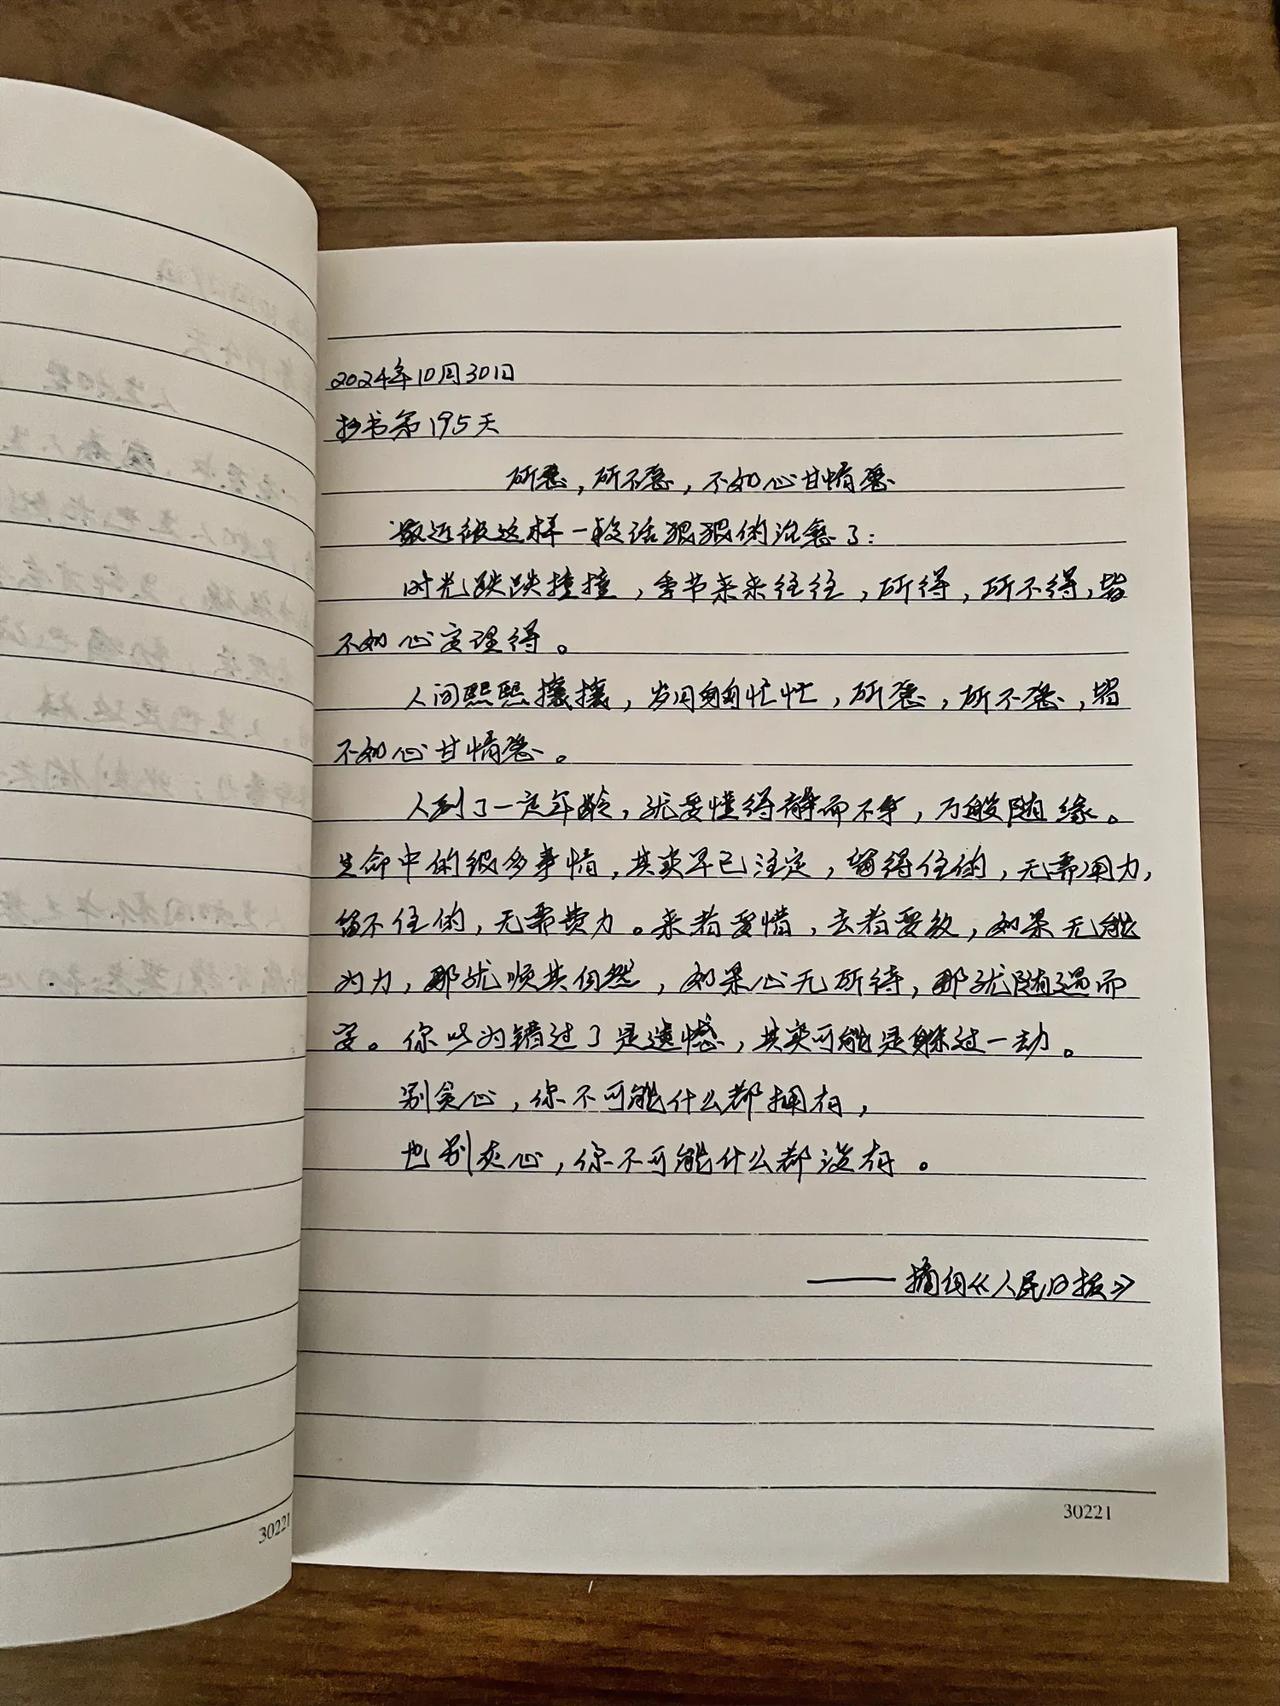 2024年10月30日
抄书第195天
所愿，所不愿，不如心甘情愿
最近被这样一段话狠狠的治愈了：
时光跌跌撞撞，季节来来往往，所得，所不得，皆
不如心安理得。
人间熙熙攘攘，岁月匆匆忙忙，所愿，所不愿，皆
不如心甘情愿。
人到了一定年龄，就要懂得静而不争，万般随缘。
生命中的很多事情，其实早已注定，留得住的，无需用力，
留不住的，无需费力。来者要惜，去者要放，如果无能
为力，那就顺其自然，如果心无所待，那就随遇而
安。你以为错过了是遗憾，其实可能是躲过一劫。
别贪心，你不可能什么都拥有，
也别灰心，你不可能什么都没有。
——摘自《人民日报》
30221
30221